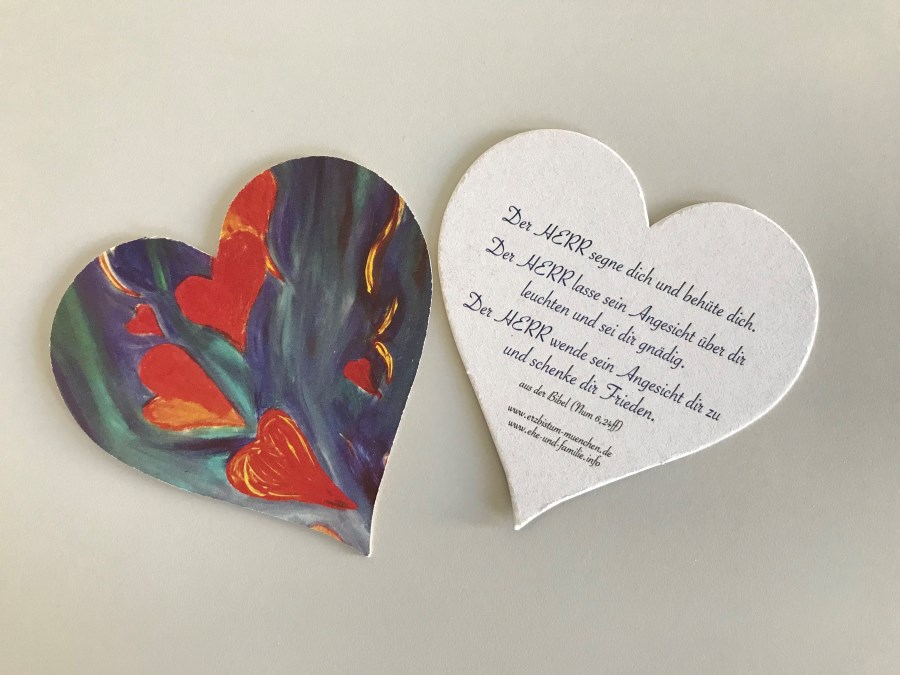 Der HERR segne dich und behüte dich.
Der HERR lasse sein Angesicht über dir
leuchten und sei dir gnädig.
Der HERR wende sein Angesicht dir zu
und schenke dir Frieden.
aus der Bibel (Num 6,24ff)
www.erzbistum-muenchen.de
www.ehe-und-familie.info